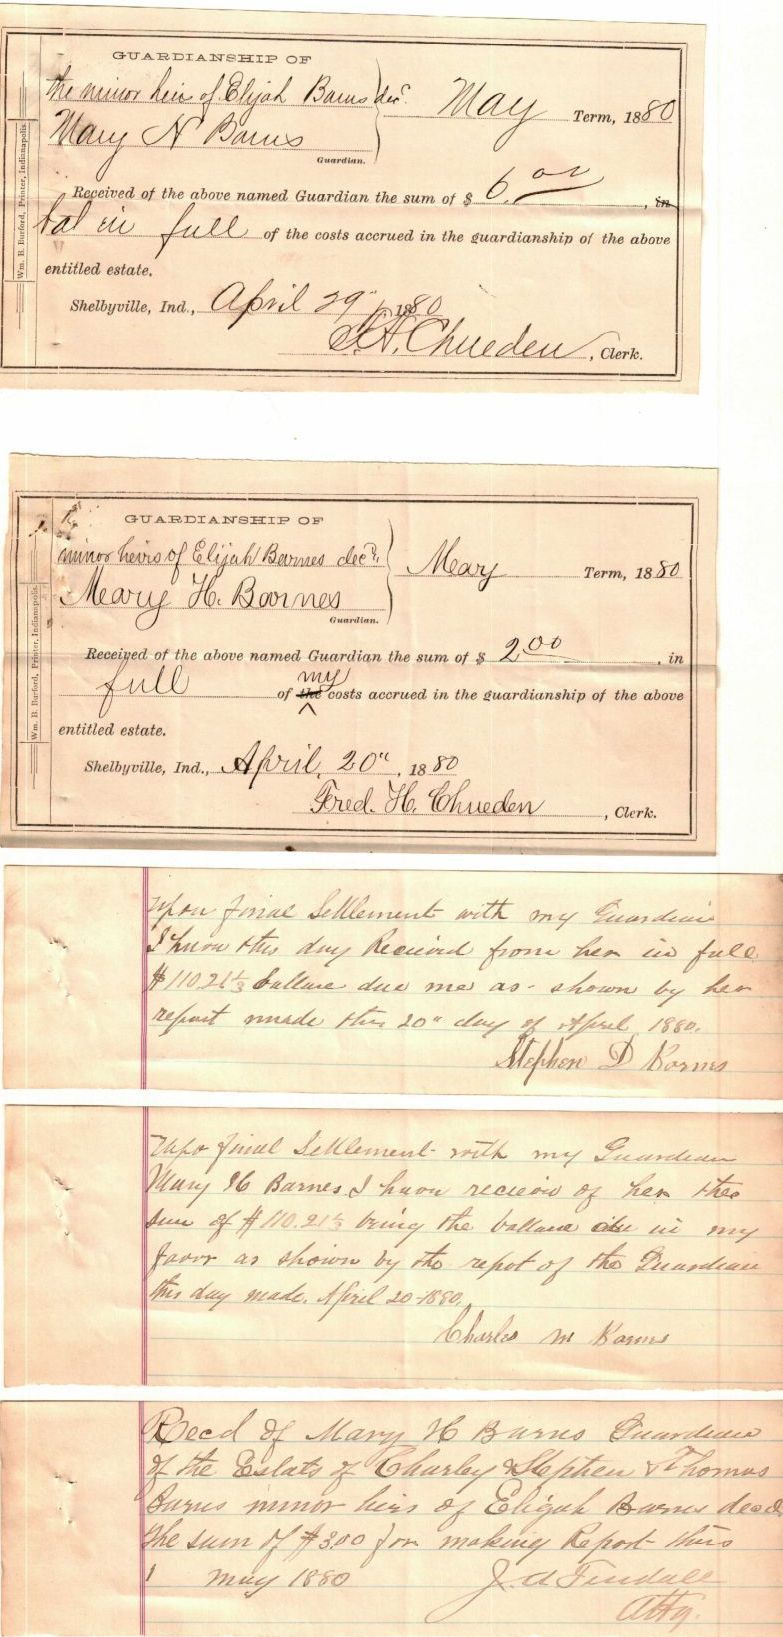 GUARDIANSHIP OF
the minor heir of Elijah Barns decd.
May Term, 1880
Mary N Barns
Guardian.
Received of the above named Guardian the sum of $ 6.00, in
bal in full of the costs accrued in the guardianship of the above
entitled estate.
Shelbyville, Ind., April 29", 1880
Clerk.
Wm. B. Burford, Printer, Indianapolis.
GUARDIANSHIP OF
minor heirs of Elijah Barnes decd.
May Term, 1880
Mary H. Barnes
Guardian.
Received of the above named Guardian the sum of $ 2.00, in
full of the my costs accrued in the guardianship of the above
entitled estate.
Shelbyville, Ind., April, 20", 1880
Fred. H. Chueden, Clerk.
Wm. B. Burford, Printer, Indianapolis.
Upon final Settlement with my Guardian
I have this day Received from her in full
$110.21⅓ ballance due me as shown by her
report made this 20" day of April 1880.
Stephen D Barnes
Upo final Settlement with my Guardian
Mary H Barnes I have reciev of her the
sum of $110.21⅓ being the ballance due in my
favor as shown by the repot of the Guardian
this day made. April 20-1880.
Charles M Barns
Recd of Mary H Barns Guardian
of the Estats of Charley & Stephen & Thomas
Barns minor hirs of Elijah Barns decd
the sum of $3.00 for making Report this
1 May 1880
J. A Tindall
Atty.